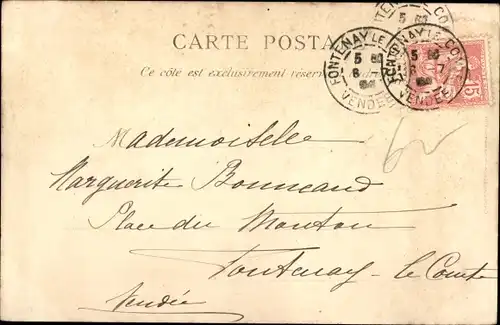 CARTE POSTA
Ce côté est exclusivement réser
FONTENAY LE
5
VENDEE
15
Mademoiselle
Marguerite Bonneaud
Place du Mouton
Fontenay-le Comte
Vendée